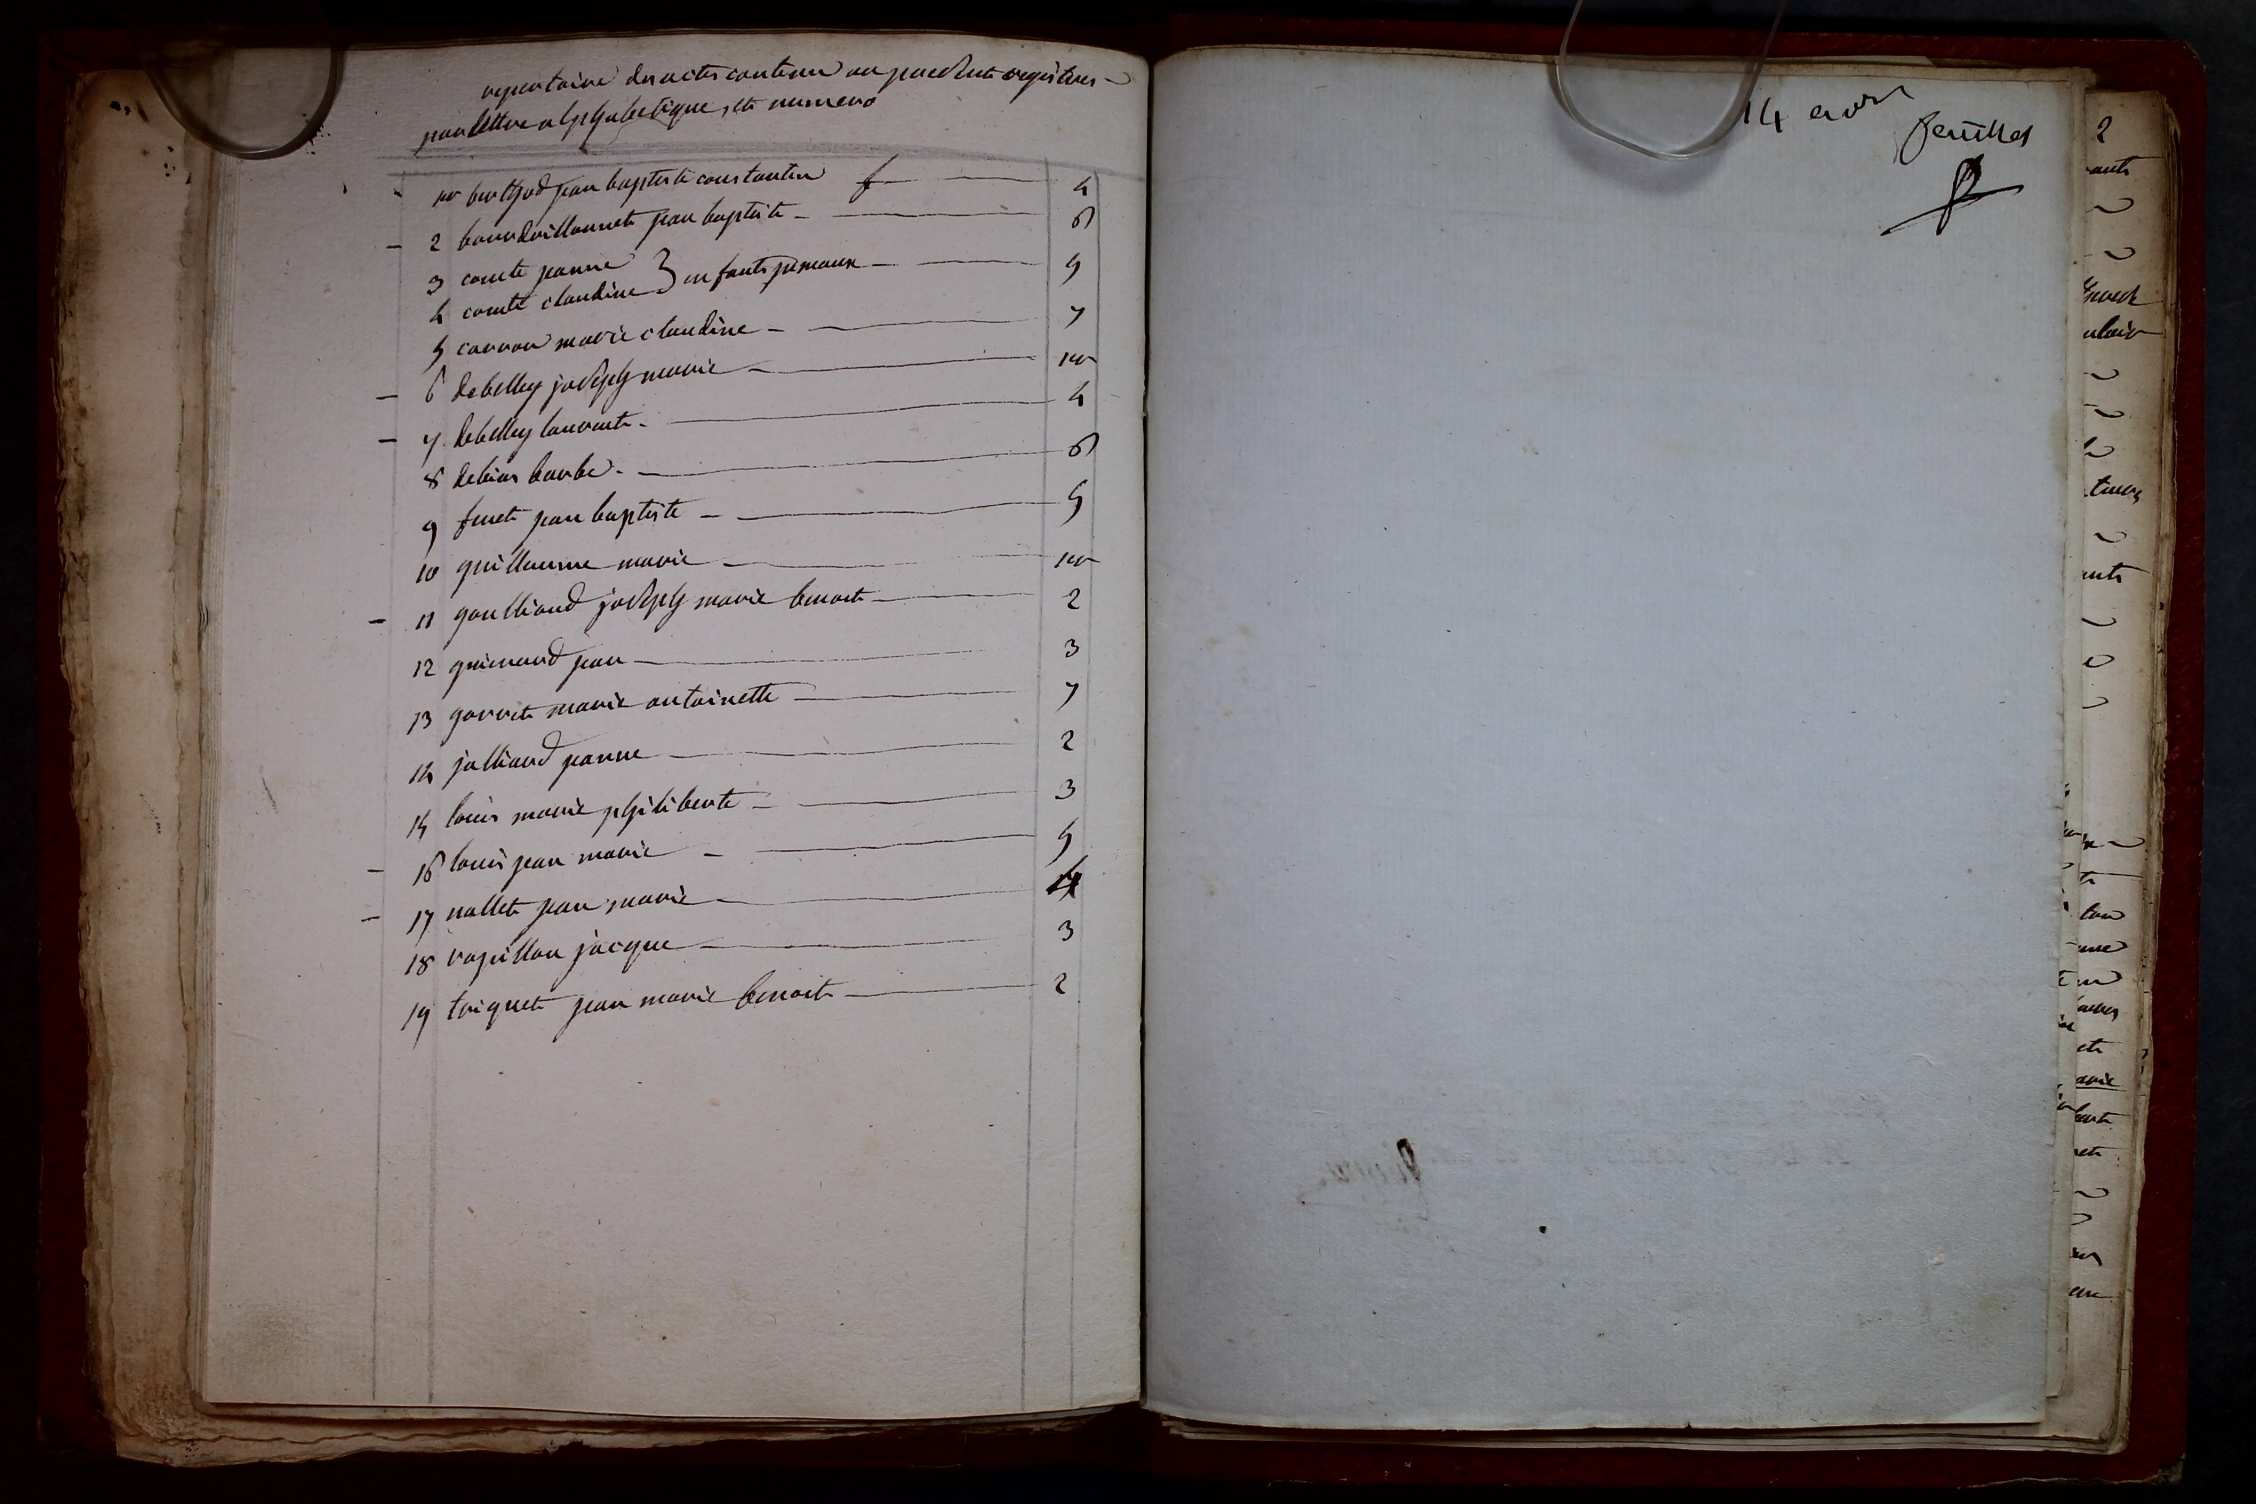 repertoire des actes contenu au present registres
par lettre alphabetique, et numero
1er berthod jean baptiste constantin f 4
2 bourdrillonnet jean baptiste 6
3 comte jeanne } enfants jumeaux 5
4 comte claudine
5 carron marie claudine 7
6 debelley joseph marie 1er
7 debelley laurent 4
8 debias barbe 6
9 furet jean baptiste 5
10 guillaume marie 1er
11 goulliand joseph marie benoit 2
12 guinand jean 3
13 gorret marie antoinette 7
14 julliand jeanne 2
15 louis marie philiberte 3
16 louis jean marie 5
17 nallet jean marie 4
18 rapillon jacque 3
19 triquet jean marie benoit 2
14
feuilles